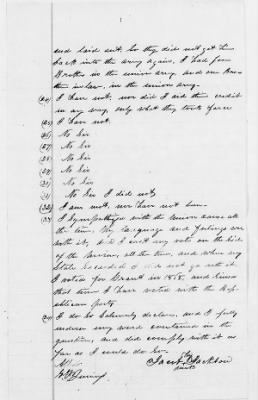 and laid out. So they did not get him
back into the army again. I had four
Brothers in the union army, and one Bro
ther in law, in the union army.
I have not, nor did I aid their credit
in any way, only what they took of me
I have not.
No Sir
No Sir
No Sir
No Sir
No Sir
(31) No Sir
No Sir I did not
(32) I am not, nor have not been.
(33) I sympathized with the Union cause all
the time. My language and feelings were
with it, and I cast my vote on the side
of the Union, all the time, and when my
State seceded I did not go with it.
I voted for Grant in 1868, and since
that time I have voted with the Rep
ublican party
I do So Solemnly declare, and I fully
endorse my word contained in the
question, and did comply with it as
far as I could do So.
Jacob Jackson
mark